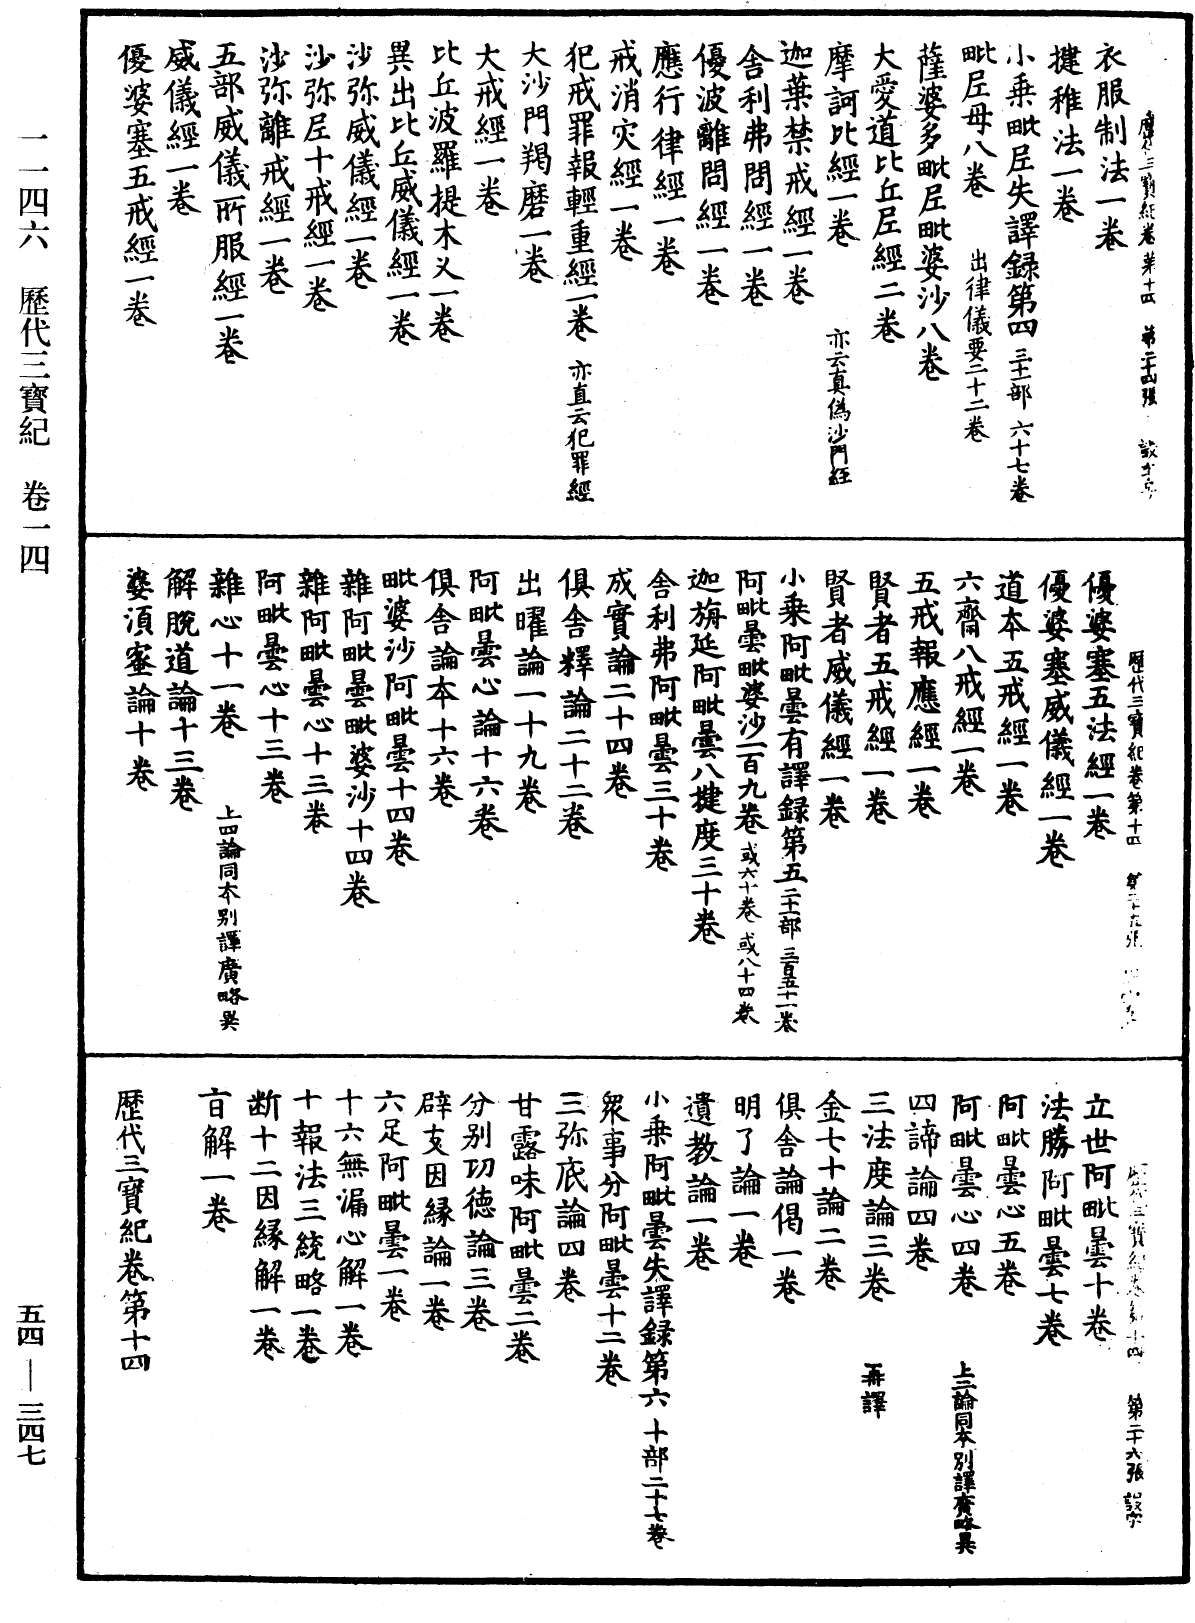 衣服制法一卷
揵稚法一卷
小乘毗尼失譯録第四 三十一部 六十七卷
毗尼母八卷 出律儀要二十二卷
薩婆多毗尼毗婆沙八卷
大愛道比丘尼經二卷
摩訶比經一卷 亦云真偽沙門經
迦葉禁戒經一卷
舍利弗問經一卷
優波離問經一卷
應行律經一卷
戒消灾經一卷
犯戒罪報輕重經一卷 亦直云犯罪經
大沙門羯磨一卷
大戒經一卷
比丘波羅提木义一卷
異出比丘威儀經一卷
沙弥威儀經一卷
沙弥尼十戒經一卷
沙弥離戒經一卷
五部威儀所服經一卷
威儀經一卷
優婆塞五戒經一卷
歷代三寶紀卷第十四
優婆塞五法經一卷
優婆塞威儀經一卷
道本五戒經一卷
六齋八戒經一卷
五戒報應經一卷
賢者五戒經一卷
賢者威儀經一卷
小乘阿毗曇有譯録第五 二十一部 三百五十一卷
阿毗曇毗婆沙一百九卷 或六十卷 或八十四卷
迦旃延阿毗曇八揵度三十卷
舍利弗阿毗曇三十卷
成實論二十四卷
俱舍釋論二十二卷
出曜論一十九卷
阿毗曇心論十六卷
俱舍論本十六卷
毗婆沙阿毗曇十四卷
雜阿毗曇毗婆沙十四卷
雜阿毗曇心十三卷
阿毗曇心十三卷
雜心十一卷 上四論同本别譯廣略異
解脫道論十三卷
婆湏蜜論十卷
第二十六張
立世阿毗曇十卷
法勝阿毗曇七卷
阿毗曇心五卷
阿毗曇心四卷 上三論同本别譯廣略異
四諦論四卷
三法度論三卷 再譯
金七十論二卷
俱舍論偈一卷
明了論一卷
遺教論一卷
小乘阿毗曇失譯録第六 十部二十七卷
衆事分阿毗曇十二卷
三弥底論四卷
甘露味阿毗曇二卷
分别功徳論三卷
辟支因縁論一卷
六足阿毗曇一卷
十六無漏心解一卷
十報法三統略一卷
断十二因縁解一卷
盲解一卷
歷代三寶紀卷第十四
一一四六 歷代三寶紀 卷一四
五四—三四七